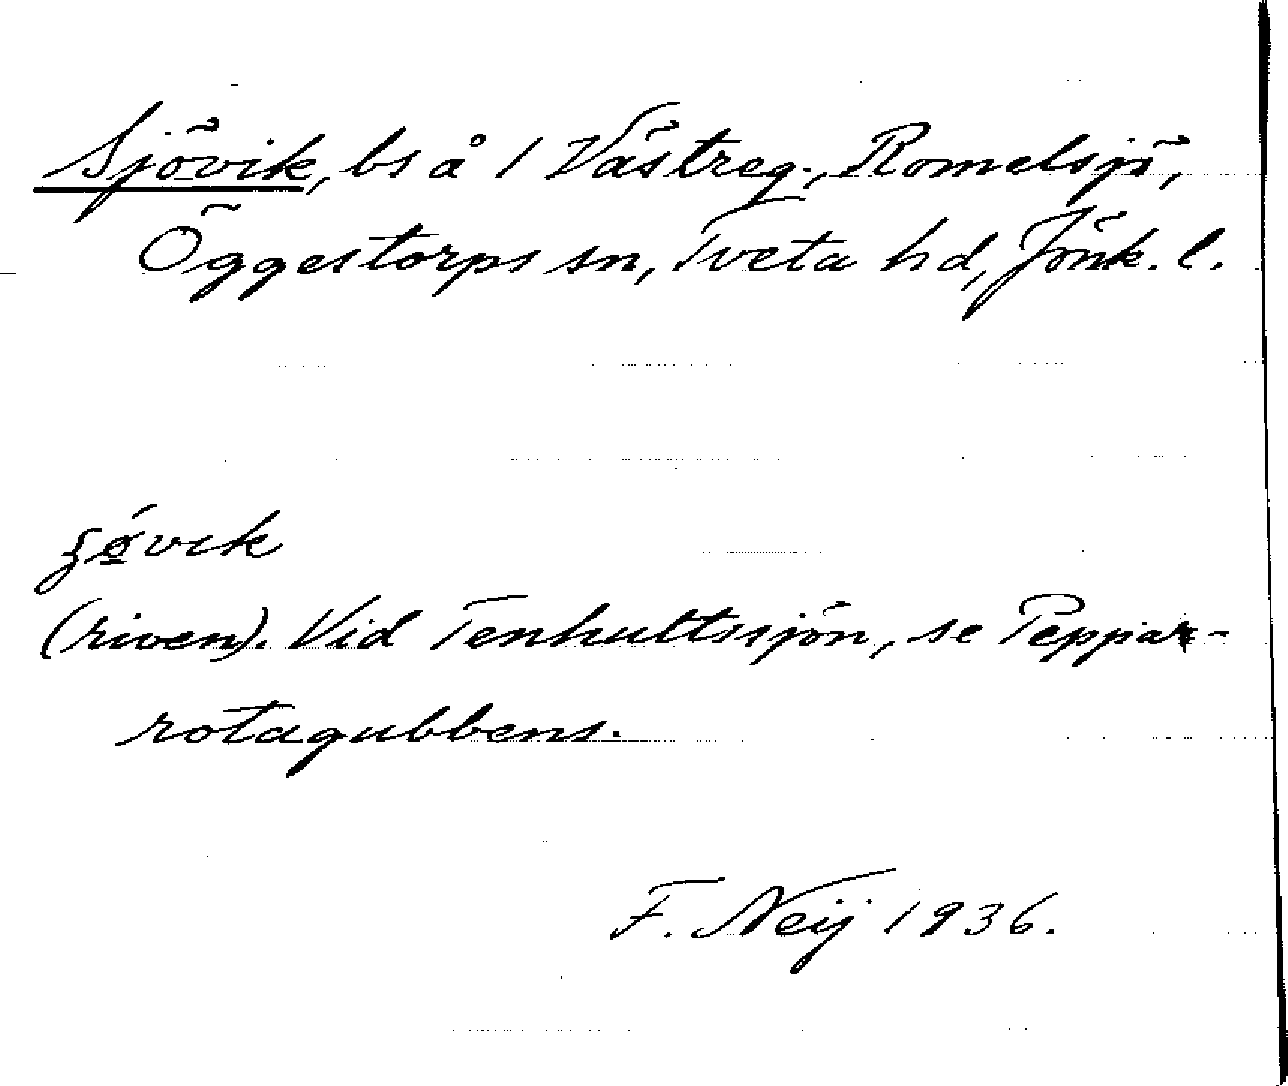 Sjövik, bs å 1 Västreg., Romelsjö,
Öggestorps sn, Tveta hd, Jönk. l.
ʒǿvık
(riven). Vid Tenhultssjön, se Peppar-
rotagubbens.
F. Neij 1936.